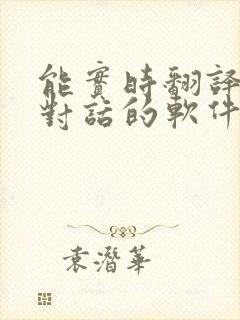 能實時翻譯
對話的軟件
袁潛華